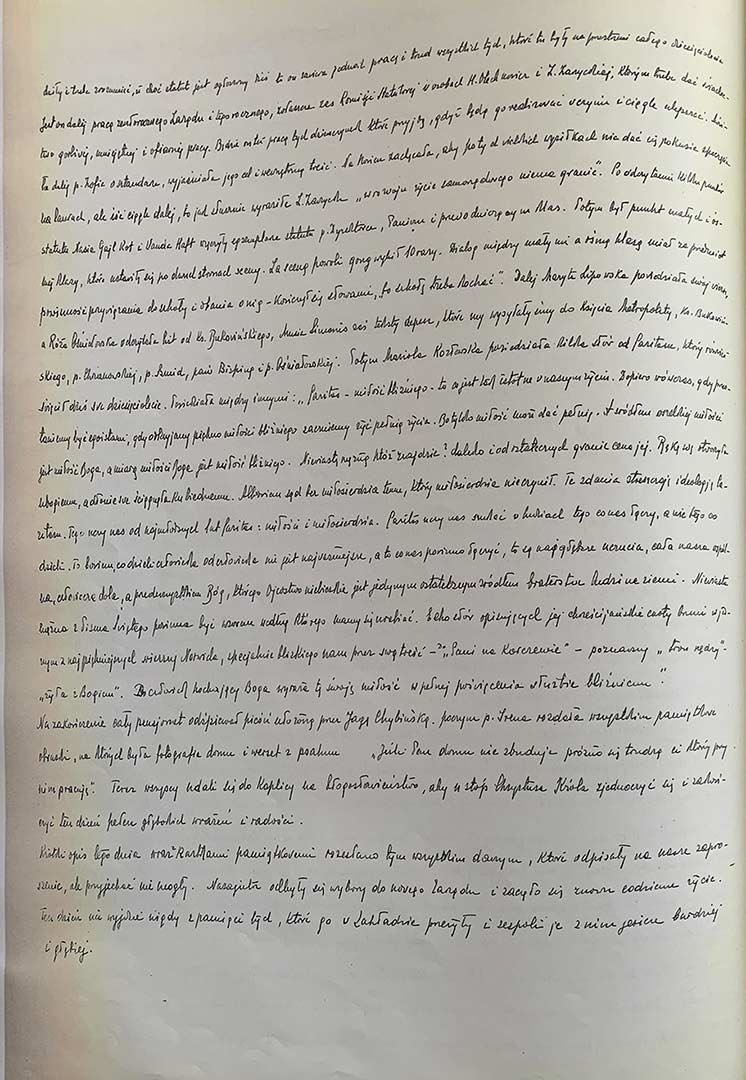 dzieły i trzeba zrozumieć, iż choć statut jest ogłoszony dziś to on zawiera jednak pracę i trud wszystkich tych, które tu były na przestrzeni całego dziesięciolecia
Jest on dalej pracą zeszłorocznego Zarządu i tegorocznego, zwłaszcza zaś Komisji Statutowej w osobach H. Olechnowicz i Z. Zarzyckiej, którym trzeba dać świadec-
two gorliwej, umiejętnej i ofiarnej pracy. Będzie on też pracą tych dziewczynek które przyjdą, gdyż będą go realizować w czynie i ciągle ulepszać.
dalej p. Zofia o sztandarze, wyjaśniała jego cel i wewnętrzną treść. Na końcu zachęcała, aby po tych wielkich wysiłkach nie dać się pokusie spoczęcia
na laurach, ale iść ciągle dalej, to jak słusznie wyraziła Z. Zarzycka „w rozwoju życie samorządowego niema granic". Po odczytaniu kilku punktów
statutu Nasia Gajl Kot i Wanda Haft wręczyły egzemplarze statutu p. Dyrektorce, Paniom i przewodniczącym klas. Potym był punkt małych i ós-
mej klasy, które ustawiły się po dwuch stronach sceny. Za sceną powoli gong wybił 10 razy. Dialog między małymi a ósmą klasą miał za przedmiot
powinność przywiązania do szkoły i dbania o nią – kończył się słowami, „bo szkołę trzeba kochać". Dalej Maryta Lipowska powiedziała swój wiersz,
a Róża odczytała list od Ks. Bukowińskiego, Musia Simonis zaś teksty depesz, które my wysyłałyśmy do Księcia Metropolity, ks. Bukowiń-
skiego, p. Chrzanowskiej, p. Szmid, pani Bisping i p. Potym Mariola Kozłowska powiedziała kilka słów od Caritasu, który również
święcił dziś swe dziesięciolecie. Powiedziała między innymi: „Caritas – miłość bliźniego – to co jest tak istotne w naszym życiu. Dopiero wówczas, gdy prze-
staniemy być egoistami, gdy odkryjemy piękno miłości bliźniego zaczniemy żyć pełnią życia. Bo tylko miłość może dać pełnię. A źródłem wszelkiej miłości
jest miłość Boga, a miarą miłości Boga jest miłość bliźniego. Niewiastę mężną któż znajdzie? daleko i od ostatecznych granic cena jej. Rękę swą otworzyła
ubogiemu, a dłonie swe ściągnęła ku biednemu. Albowiem sąd bez miłosierdzia temu, który miłosierdzia nie czynił. Te zdania streszczają ideologię Ca-
ritasu. Tego uczy nas od najmłodszych lat Caritas: miłości i miłosierdzia. Caritas uczy nas szukać w ludziach tego co nas łączy, a nie tego co
dzieli. To bowiem, co dzieli człowieka od człowieka nie jest najważniejsze, a to co nas powinno łączyć, to są najgłębsze uczucia, cała nasza wspól-
na, człowiecza dola, a przedewszystkim Bóg, którego Ojcostwo niebieskie jest jedynym ostatecznym źródłem braterstwa ludzi na ziemi. Niewiasta
mężna z Pisma Świętego powinna być wzorem według którego mamy się urabiać. Echo słów opisujących jej chrześcijańskie cnoty brzmi w jed-
nym z najpiękniejszych wierszy Norwida, specjalnie bliskiego nam przez swą treść – „Pani na Korczewie" – poznawszy „tron nędzy" –
„żyła z Bogiem". Bo człowiek kochający Boga wyraża tę swoją miłość w pełnej poświęcenia służbie bliźniemu".
Na zakończenie cały pensjonat odśpiewał pieśń ułożoną przez Jagę Chybińską. poczym p. Irena rozdała wszystkim pamiątkowe
obrazki, na których była fotografia domu i werset z psalmu „Jeśli Pan domu nie zbuduje próżno się trudzą ci którzy przy
nim pracują". Teraz wszyscy udali się do Kaplicy na błogosławieństwo, aby u stóp Chrystusa Króla zjednoczyć się i zakoń-
czyć ten dzień pełen głębokich wrażeń i radości.
Krótki opis tego dnia wraz z kartkami pamiątkowemi rozesłano tym wszystkim dawnym, które odpisały na nasze zapro-
szenie, ale przyjechać nie mogły. Nazajutrz odbyły się wybory do nowego Zarządu i zaczęło się znowu codzienne życie.
Ten dzień nie wyjdzie nigdy z pamięci tych, które go w Zakładzie przeżyły i zespoli je z nim jeszcze bardziej
i głębiej.